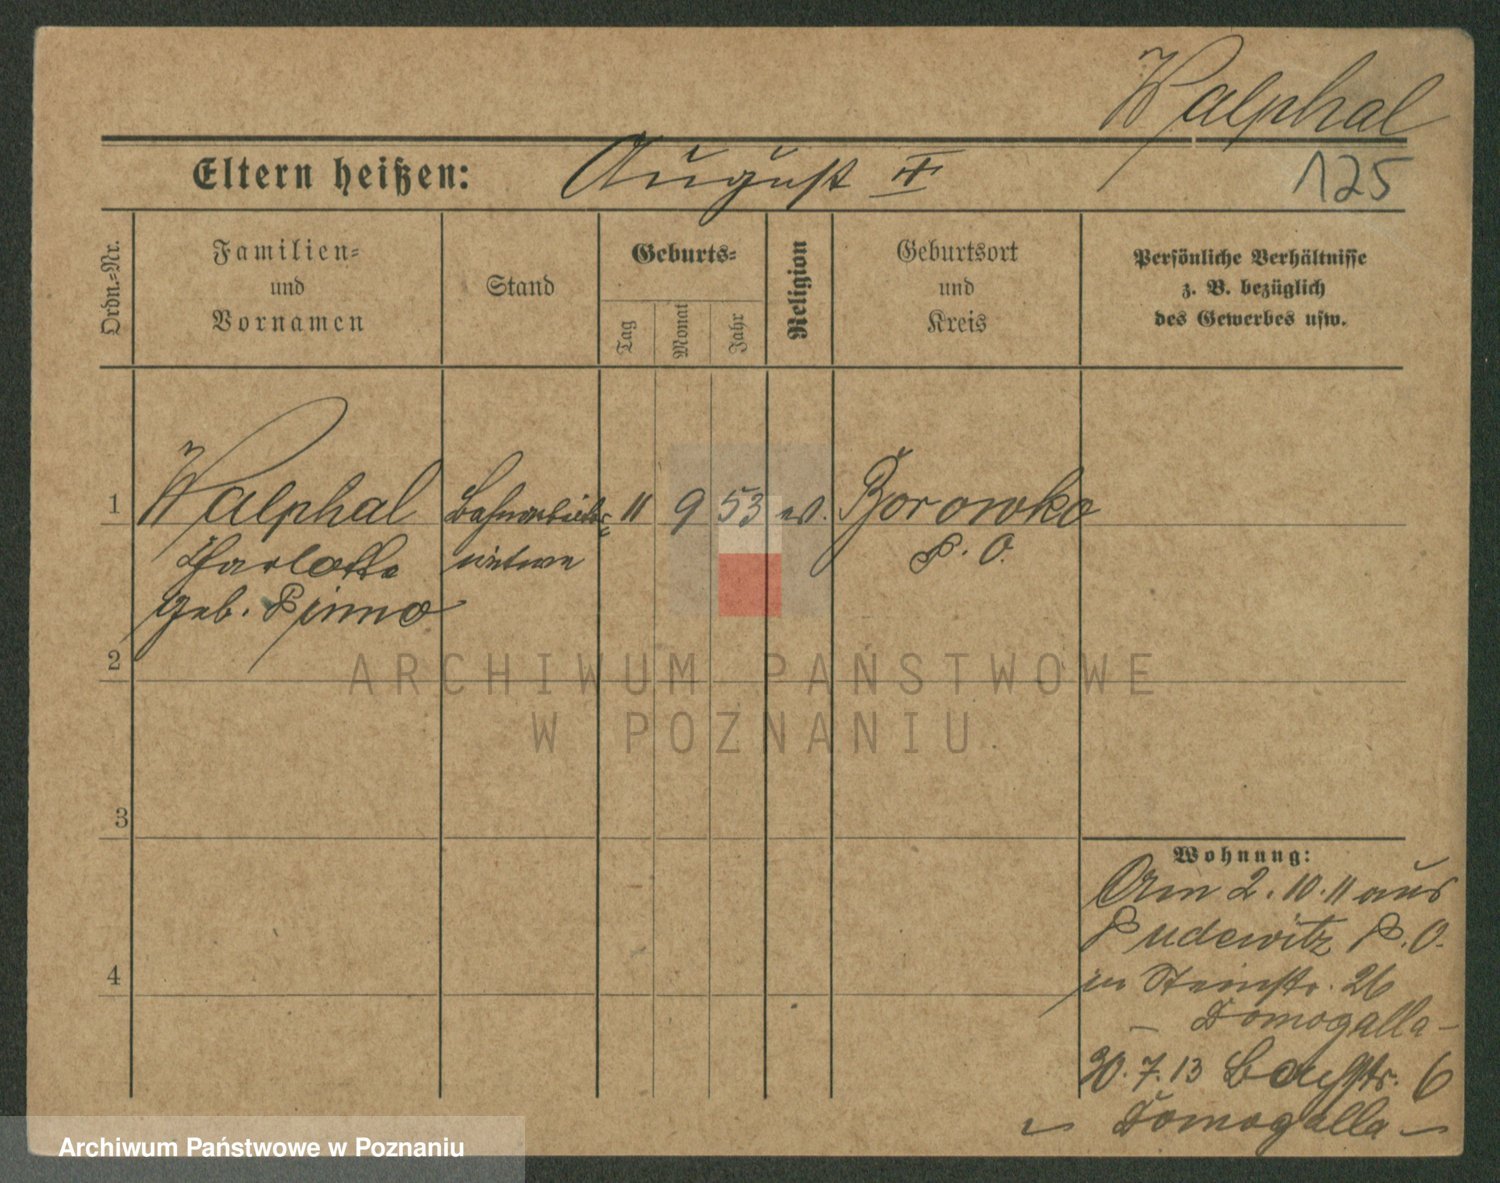 Walphal
125
Eltern heißen: August
Ordn.-Nr.
Familien-
und
Vornamen
Stand
Geburts-
Tag
Monat
Jahr
Religion
Geburtsort
und
Kreis
Persönliche Verhältnisse
z. B. bezüglich
des Gewerbes usw.
1 Walphal Bahnarbeiter- 11 9 53 ev. Borowko
Charlotte witwe P. O.
geb. Pinno
2
ARCHIWUM PAŃSTWOWE
W POZNANIU
3
Wohnung:
Am 2. 10. 11 aus
Pudewitz P. O.
4
in Steinstr. 26
– Domogalla –
30. 7. 13 Bachstr. 6
– Domogalla –
Archiwum Państwowe w Poznaniu